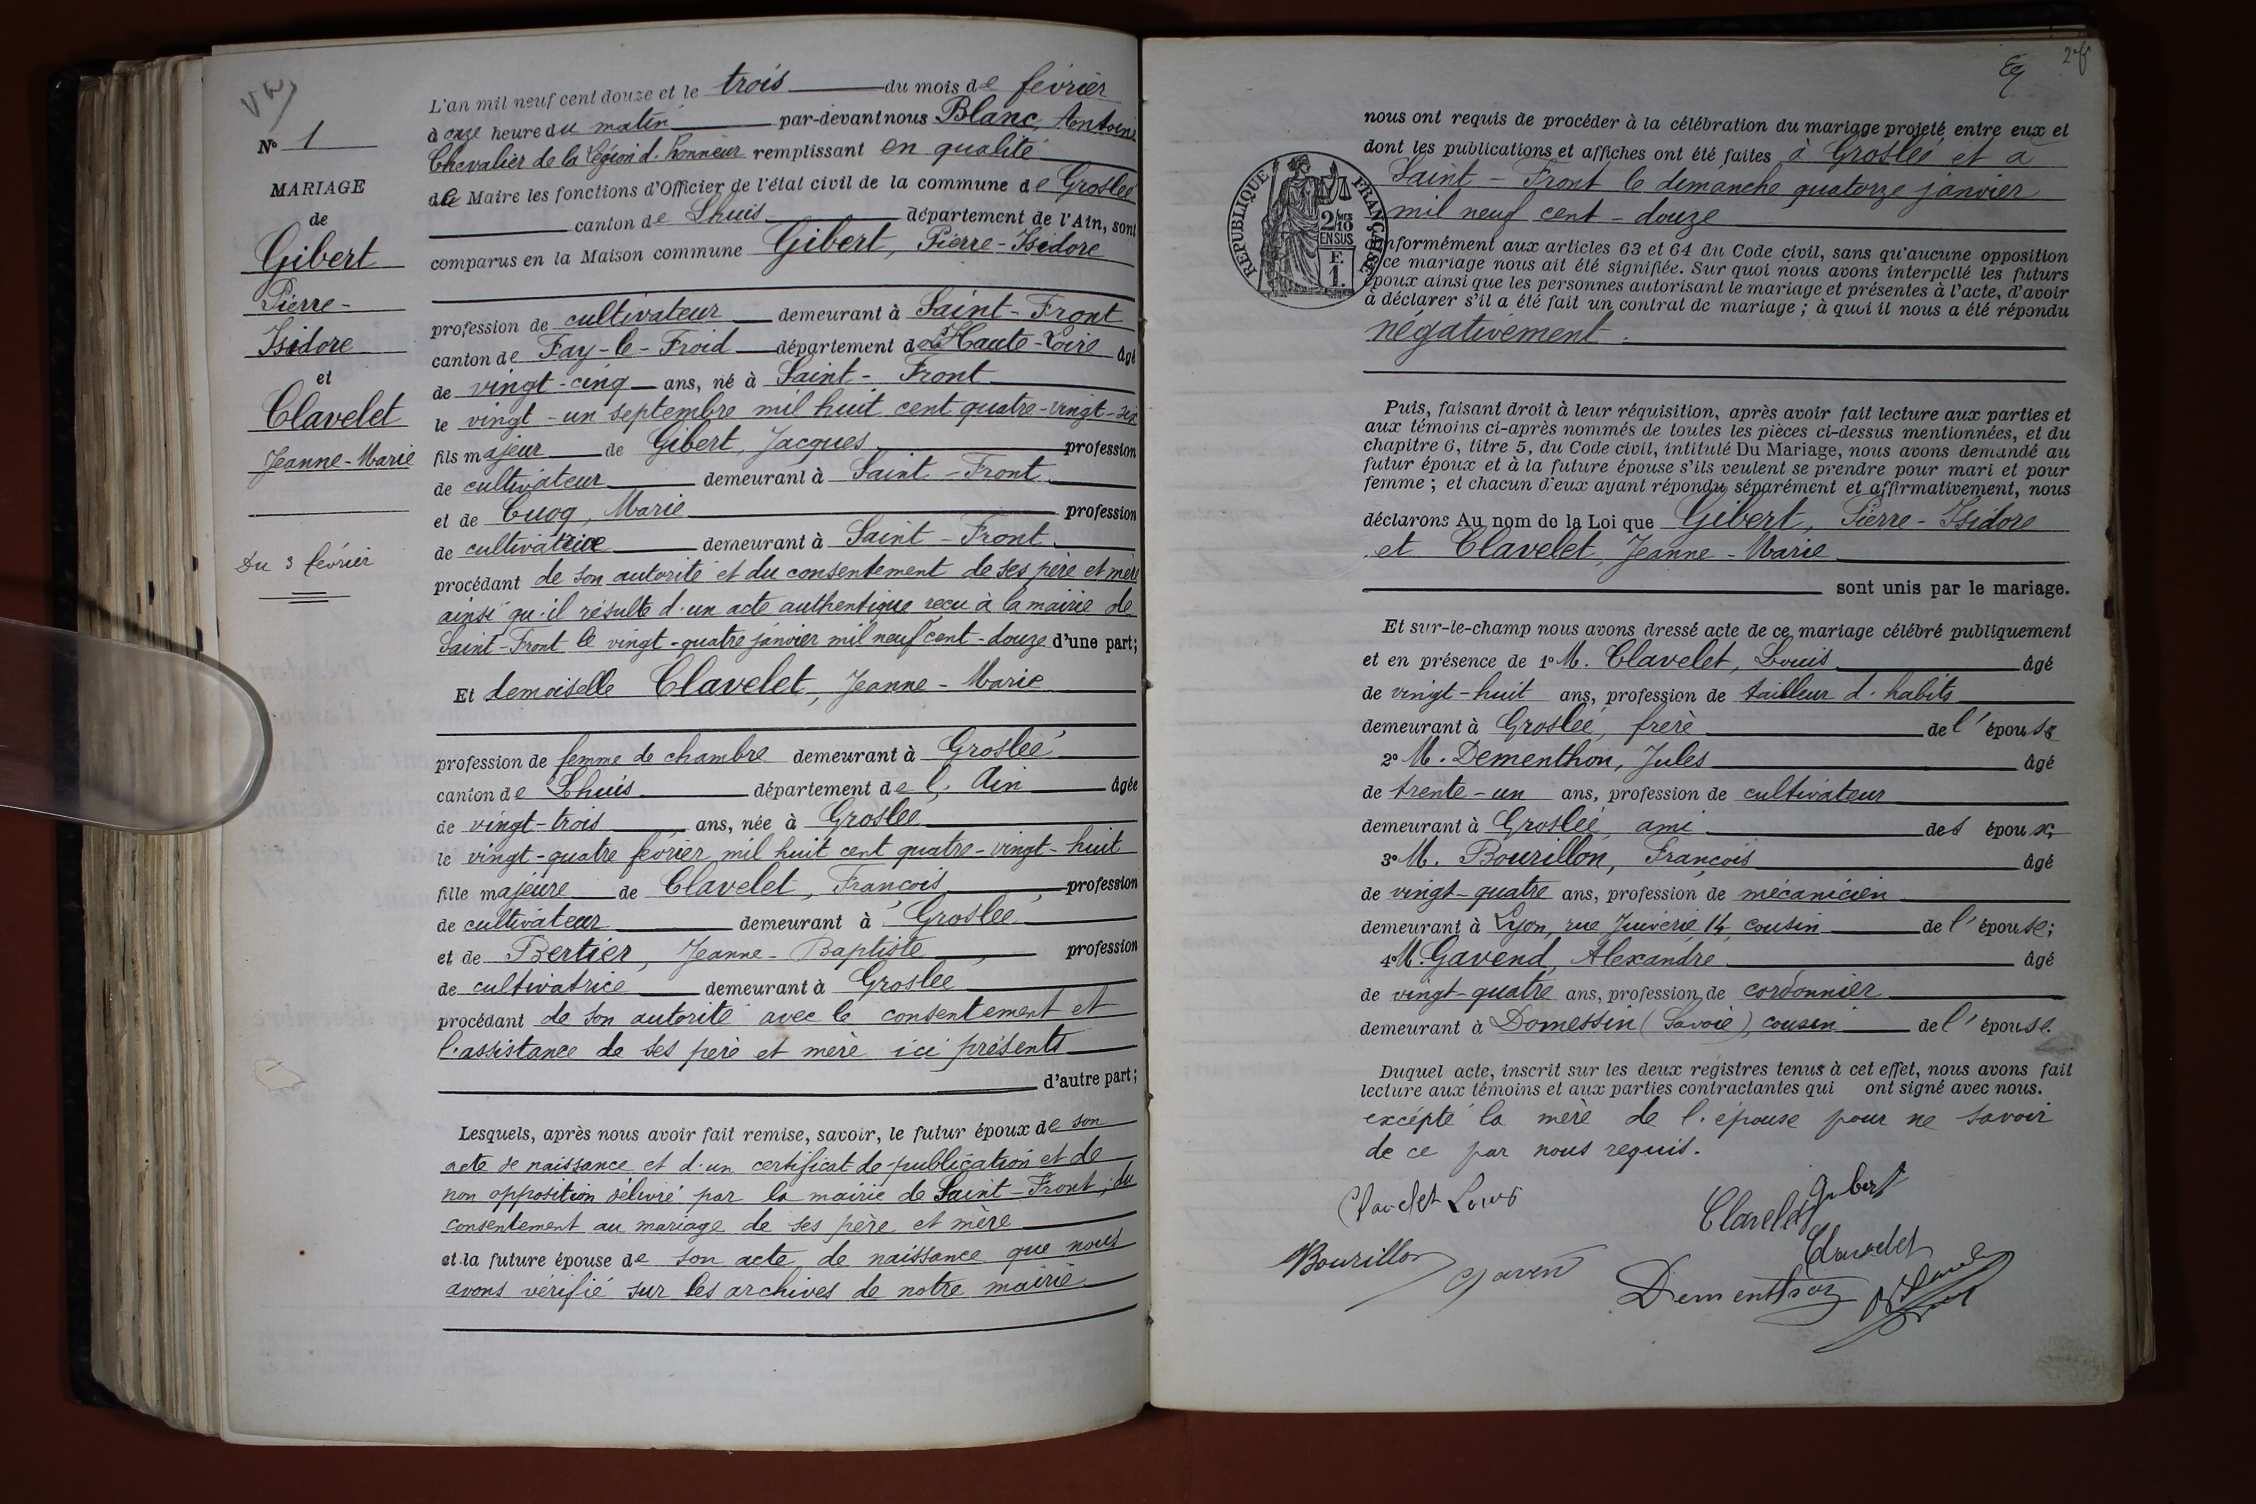 Vu
N° 1
MARIAGE
de
Gibert
Pierre-
Isidore
et
Clavelet
Jeanne-Marie
Du 3 février
L'an mil neuf cent douze et le trois du mois de février
à onze heure du matin par-devant nous Blanc, Antoine
Chevalier de la Légion d'honneur remplissant en qualité
de Maire les fonctions d'Officier de l'état civil de la commune de Groslée
canton de Lhuis département de l'Ain, sont
comparus en la Maison commune Gibert, Pierre-Isidore
profession de cultivateur demeurant à Saint-Front
canton de Fay-le-Froid département de la Haute-Loire âgé
de vingt-cinq ans, né à Saint-Front
le vingt-un septembre mil huit cent quatre-vingt-six
fils majeur de Gibert, Jacques profession
de cultivateur demeurant à Saint-Front
et de Cuoq, Marie profession
de cultivatrice demeurant à Saint-Front
procédant de son autorité et du consentement de ses père et mère
ainsi qu'il résulte d'un acte authentique reçu à la mairie de
Saint-Front le vingt-quatre janvier mil neuf cent-douze d'une part;
Et demoiselle Clavelet, Jeanne-Marie
profession de femme de chambre demeurant à Groslée
canton de Lhuis département de l'Ain âgée
de vingt-trois ans, née à Groslée
le vingt-quatre février mil huit cent quatre-vingt-huit
fille majeure de Clavelet, François, profession
de cultivateur demeurant à Groslée
et de Bertier, Jeanne-Baptiste profession
de cultivatrice demeurant à Groslée
procédant de son autorité avec le consentement et
l'assistance de ses père et mère ici présents
d'autre part;
Lesquels, après nous avoir fait remise, savoir, le futur époux de son
acte de naissance et d'un certificat de publication et de
non opposition délivré par la mairie de Saint-Front, du
consentement au mariage de ses père et mère
et la future épouse de son acte de naissance que nous
avons vérifié sur les archives de notre mairie
nous ont requis de procéder à la célébration du mariage projeté entre eux et
dont les publications et affiches ont été faites à Groslée et à
Saint-Front le dimanche quatorze janvier
mil neuf cent-douze
RÉPUBLIQUE FRANÇAISE
2/10 EN SUS
F.
1.
conformément aux articles 63 et 64 du Code civil, sans qu'aucune opposition
à ce mariage nous ait été signifiée. Sur quoi nous avons interpellé les futurs
époux ainsi que les personnes autorisant le mariage et présentes à l'acte, d'avoir
à déclarer s'il a été fait un contrat de mariage ; à quoi il nous a été répondu
négativement.
Puis, faisant droit à leur réquisition, après avoir fait lecture aux parties et
aux témoins ci-après nommés de toutes les pièces ci-dessus mentionnées, et du
chapitre 6, titre 5, du Code civil, intitulé Du Mariage, nous avons demandé au
futur époux et à la future épouse s'ils veulent se prendre pour mari et pour
femme ; et chacun d'eux ayant répondu séparément et affirmativement, nous
déclarons Au nom de la Loi que Gibert, Pierre-Isidore
et Clavelet, Jeanne-Marie
sont unis par le mariage.
Et sur-le-champ nous avons dressé acte de ce mariage célébré publiquement
et en présence de 1° M. Clavelet, Louis âgé
de vingt-huit ans, profession de tailleur d'habits
demeurant à Groslée, frère de l'épouse
2° M. Dementhon, Jules âgé
de trente-un ans, profession de cultivateur
demeurant à Groslée, ami des époux;
3° M. Bourillon, François âgé
de vingt-quatre ans, profession de mécanicien
demeurant à Lyon, rue Juiverie 14, cousin de l'épouse;
4° M. Gavend, Alexandre âgé
de vingt-quatre ans, profession de cordonnier
demeurant à Domessin (Savoie), cousin de l'épouse.
Duquel acte, inscrit sur les deux registres tenus à cet effet, nous avons fait
lecture aux témoins et aux parties contractantes qui ont signé avec nous.
excépté la mère de l'épouse pour ne savoir
de ce par nous requis.
Clavelet Louis
Gibert
Clavelet
Clavelet
Bourillon
Gavend
Dementhon
Blanc